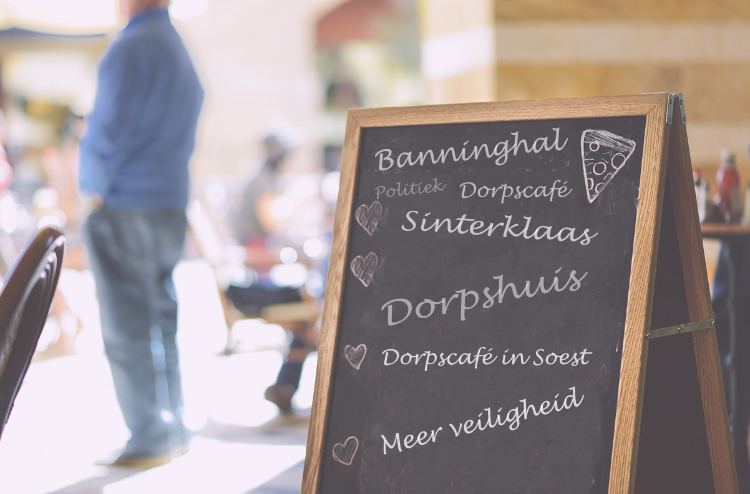 Banninghal
Politiek Dorpscafé
Sinterklaas
Dorpshuis
Dorpscafé in Soest
Meer veiligheid